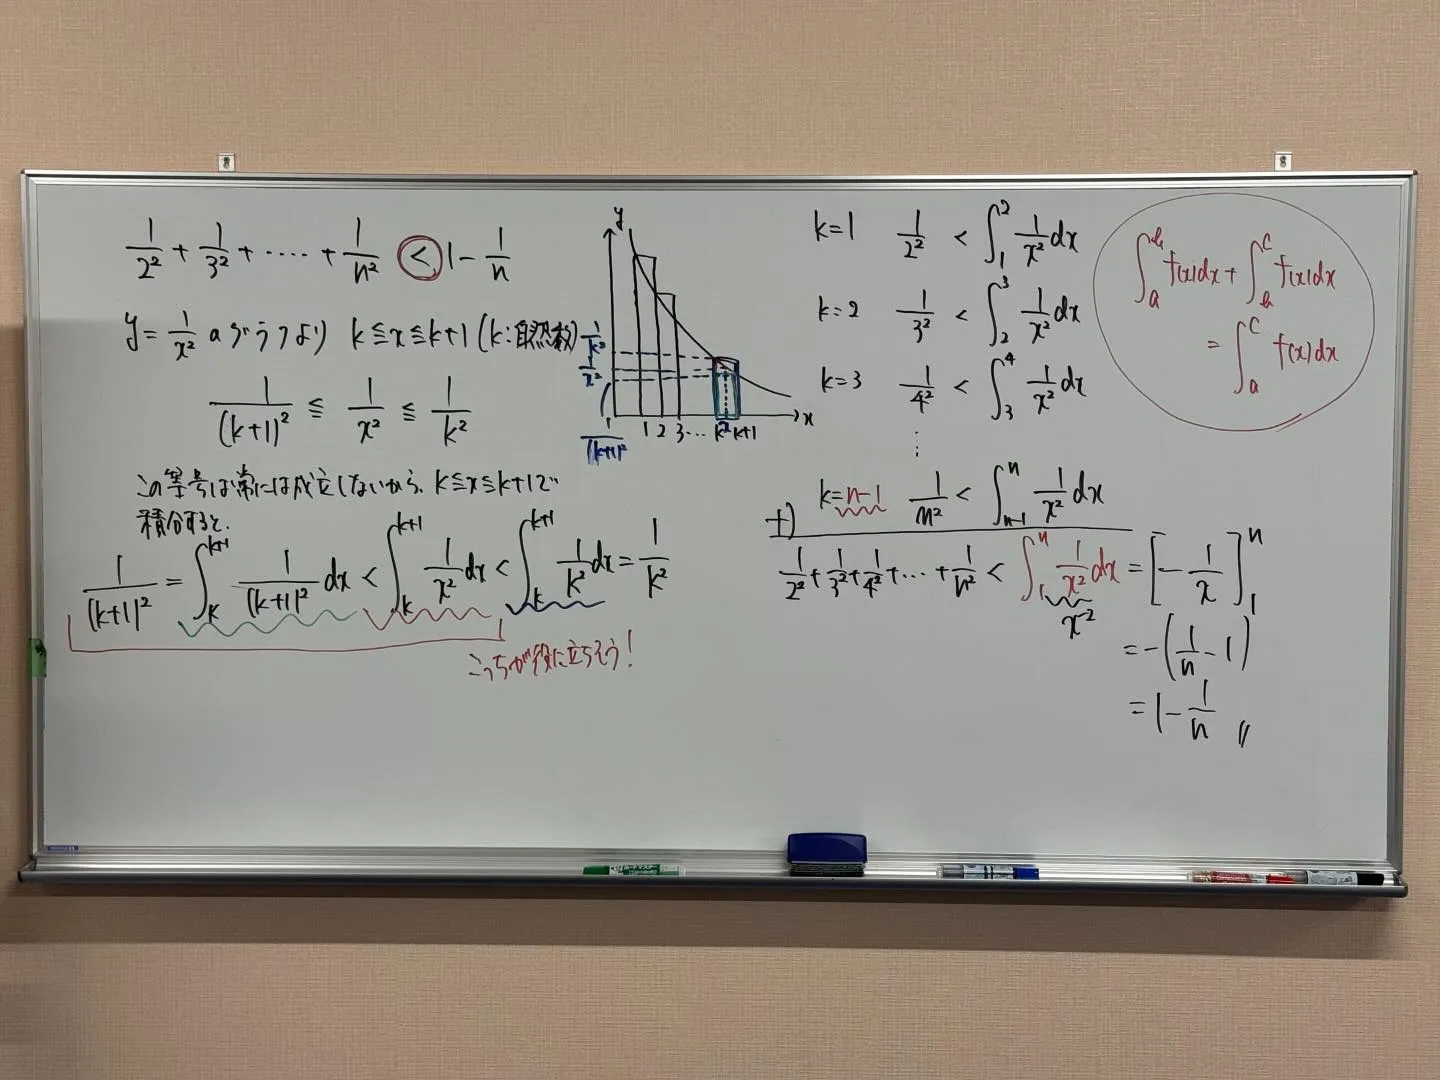 1/2² + 1/3² + ····· + 1/n² < 1 - 1/n
y = 1/x² のグラフより k ≦ x ≦ k+1 (k:自然数)
1/(k+1)² ≦ 1/x² ≦ 1/k²
この等号は常には成立しないから、k≦x≦k+1で
積分すると、
1/(k+1)² = ∫_k^{k+1} 1/(k+1)² dx < ∫_k^{k+1} 1/x² dx < ∫_k^{k+1} 1/k² dx = 1/k²
こっちが役に立ちそう!
y
1/k²
1/x²
1/(k+1)²
1 2 3 ··· k x k+1
x
k=1 1/2² < ∫_1^2 1/x² dx
k=2 1/3² < ∫_2^3 1/x² dx
k=3 1/4² < ∫_3^4 1/x² dx
⋮
k=n-1 1/n² < ∫_{n-1}^n 1/x² dx
+)
1/2² + 1/3² + 1/4² + ··· + 1/n² < ∫_1^n 1/x² dx = [-1/x]_1^n
x⁻²
= -(1/n - 1)
= 1 - 1/n //
∫_a^b f(x)dx + ∫_b^c f(x)dx
= ∫_a^c f(x)dx